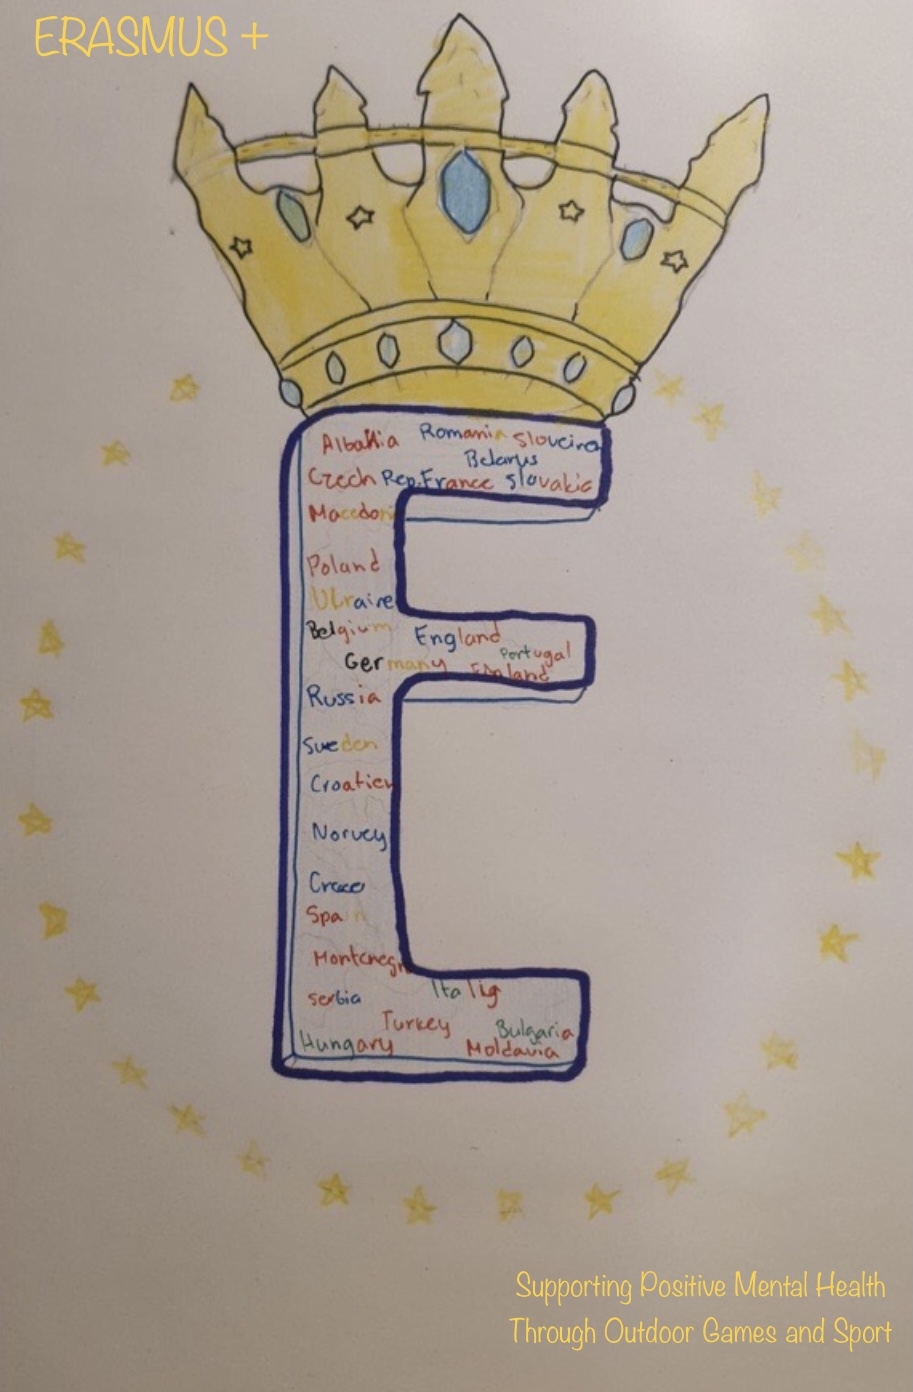 ERASMUS +
Albania Romania Sloveina
Belarus
Czech Rep. France Slovakia
Macedoni
Poland
Ukraine
Belgium England
Portugal
Germany
Russia
Sweden
Croatien
Norvey
Spain
Montenegr
serbia Italig
Turkey Bulgaria
Hungary Moldavia
Supporting Positive Mental Health
Through Outdoor Games and Sport